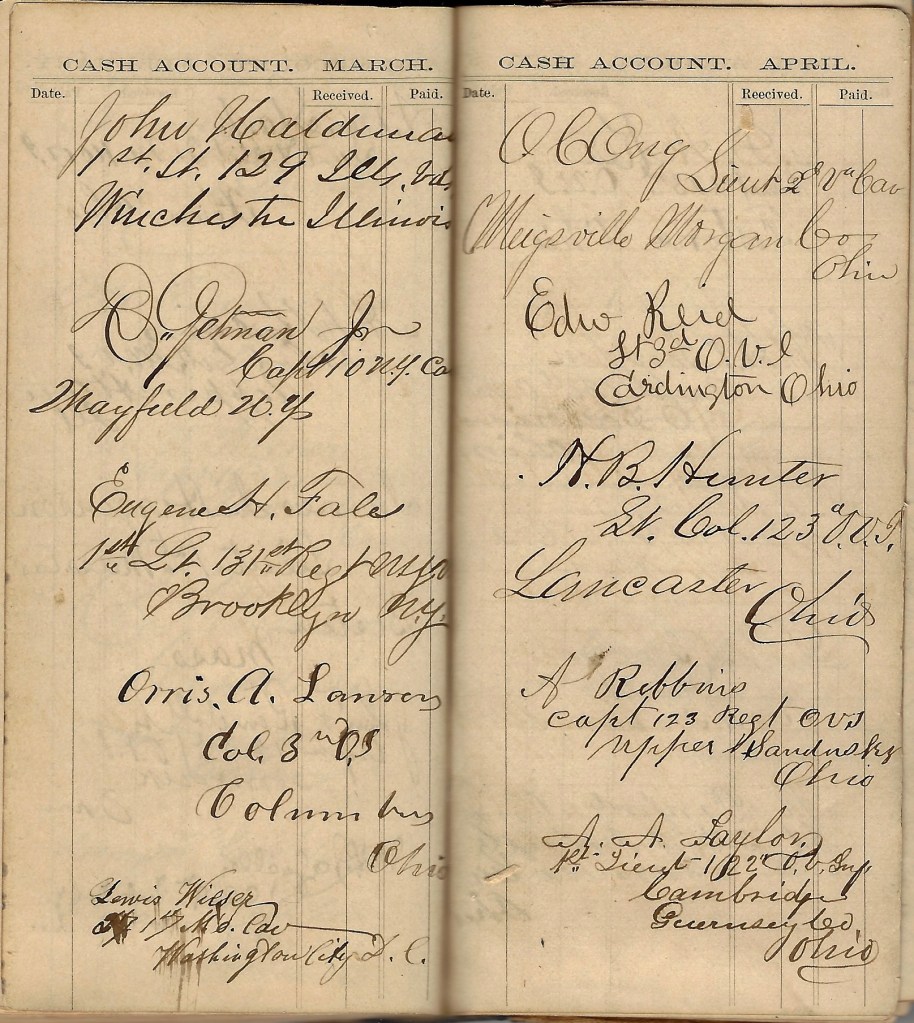 CASH ACCOUNT. MARCH.
Date. Received. Paid.
John Haldeman
1st. Lt. 129 Ills. Vols
Winchester Illinois
Getman Jr
Capt 10 N.Y. Ca
Mayfield N.Y
Eugene H. Fales
1st Lt. 131st Regt N.Y.
Brooklyn N.Y.
Orris. A. Lawson
Col. 3rd O
Columbus
Ohio
Lewis Wilser
1st Md. Cav
Washington City D. C.
CASH ACCOUNT. APRIL.
Date. Received. Paid.
O C Ong
Lieut 2d Va Cav
Meigsville Morgan Co
Ohio
Edw Reid
Lt 3d O.V.I
Cardington Ohio
H. B. Hunter
Lt. Col. 123d O.V.I.
Lancaster
Ohio
A Robbins
Capt 123 Regt OVI
Upper Sandusky
Ohio
A. A. Taylor
1st Lieut 122d O.V. Iny
Cambridge
Guernsey Co,
Ohio